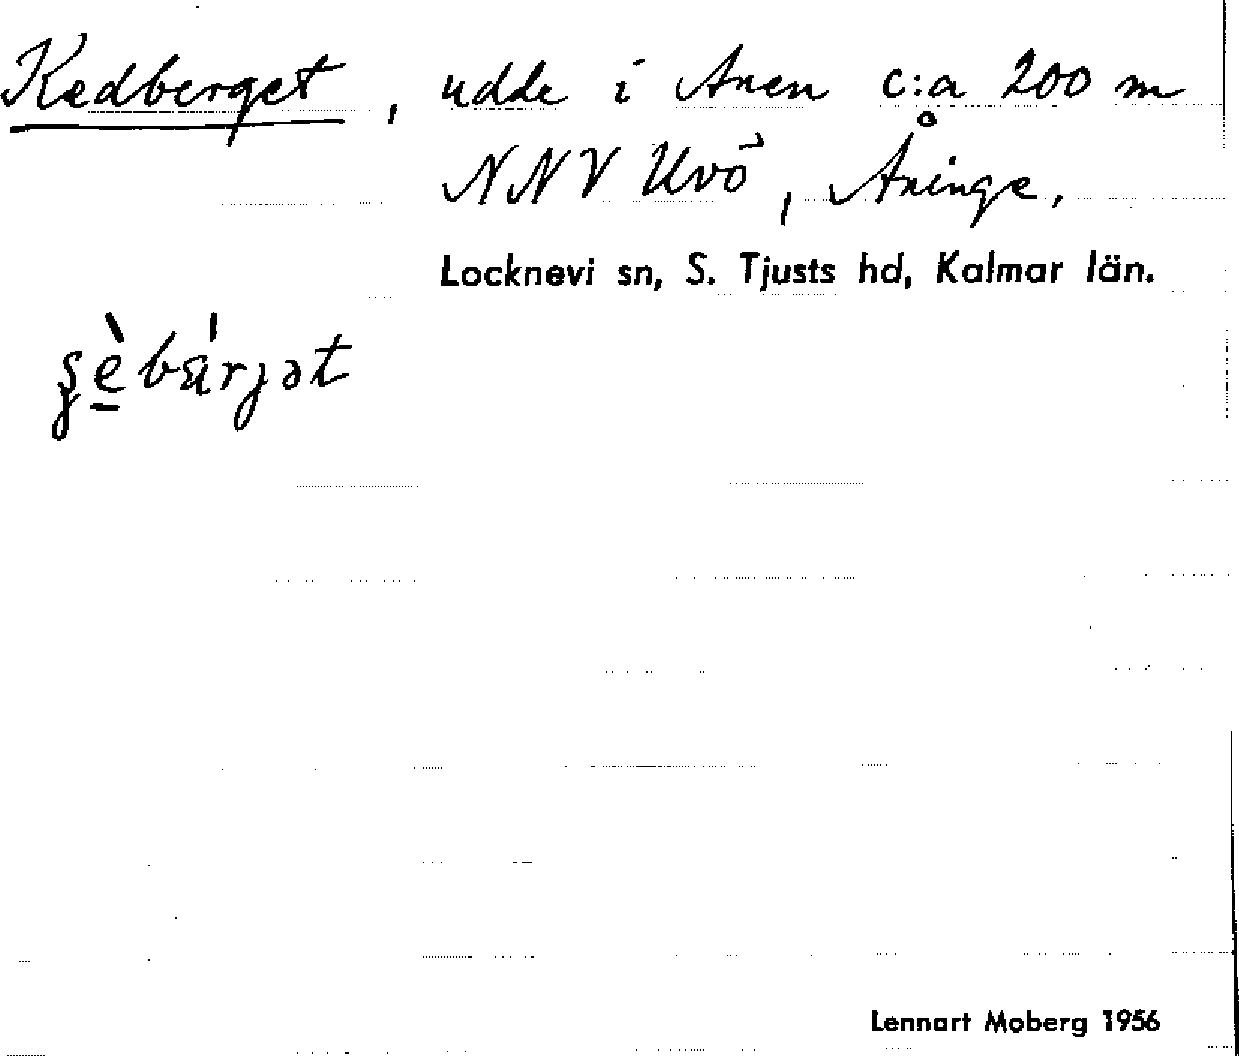 Kedberget, udde i Anen c:a 200 m
NNV Uvö, Åninge,
Locknevi sn, S. Tjusts hd, Kalmar län.
Lennart Moberg 1956